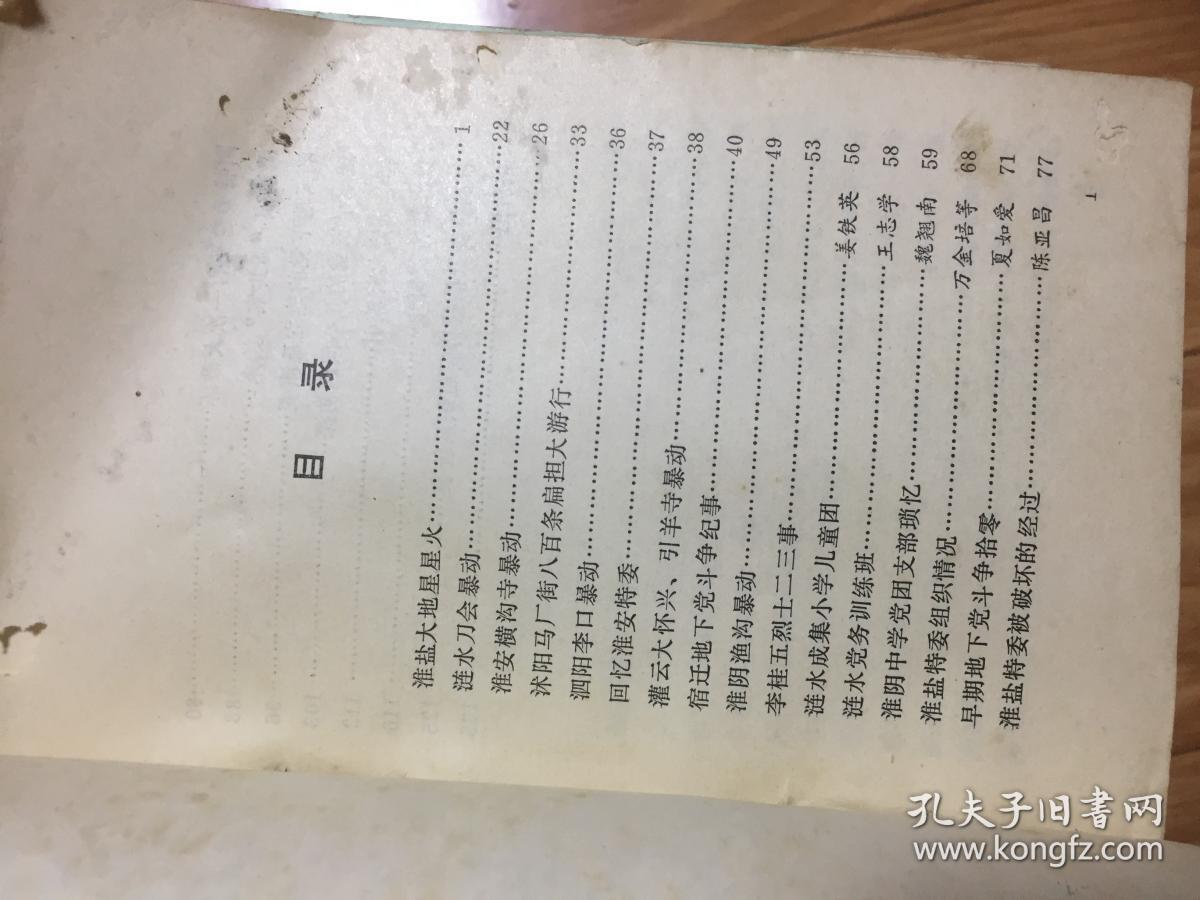 目 录
淮盐大地星星火……………………1
涟水刀会暴动……………………22
淮安横沟寺暴动……………………26
沭阳马厂街八百条扁担大游行……………………33
泗阳李口暴动……………………36
回忆淮安特委……………………37
灌云大怀兴、引羊寺暴动……………………38
宿迁地下党斗争纪事……………………40
淮阴渔沟暴动……………………49
李桂五烈士二三事……………………53
涟水成集小学儿童团……………姜铁英 56
涟水党务训练班……………王志学 58
淮阴中学党团支部琐忆……………魏翘南 59
淮盐特委组织情况……………万金培等 68
早期地下党斗争拾零……………夏如爱 71
淮盐特委被破坏的经过……………陈亚昌 77
1
孔夫子旧书网
www.kongfz.com